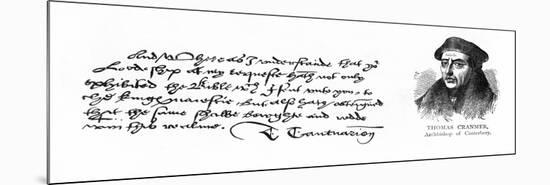 And Whereas I understande that yor
Lordeship at my requeste hath not only
exhibited the Bible I sent unto you, to
the Kings maiestie, but also hath obteigned
that the same shalbe bowghte and redde
within this realme. T Cantuarien
THOMAS CRANMER,
Archbishop of Canterbury.